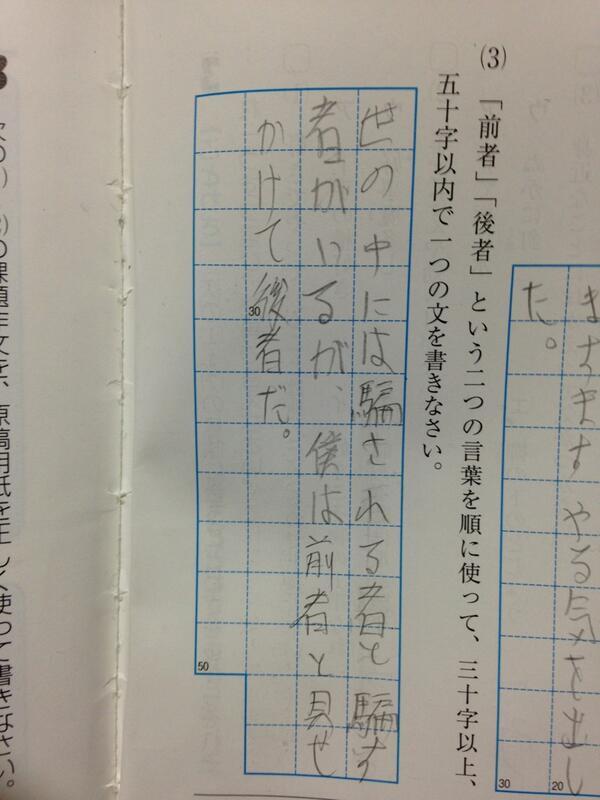 まずます やる気を出し
た。
30
20
(3) 「前者」「後者」という二つの言葉を順に使って、三十字以上、
五十字以内で一つの文を書きなさい。
世の中には騙される者と騙す
者がいるが、僕は前者と見せ
かけて後者だ。
30
50
の課題作文を、原稿用紙を正しく使って書きなさい。